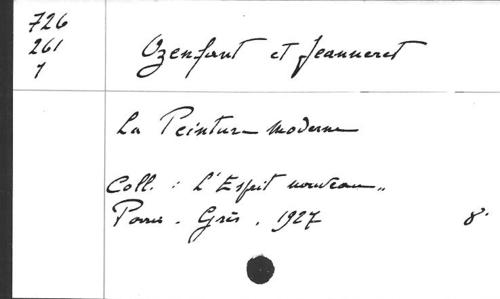 726
261
7
Ozenfant et Jeanneret
La Peinture moderne
Coll. : L'Esprit nouveau„
Paris. Grès. 1927 8°